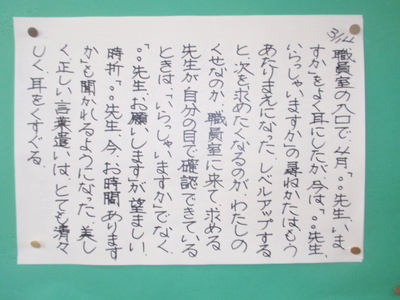 3/14
職員室の入口で、4月「○○先生、いま
すか」をよく耳にしたが、今は、「○○先生、
いらっしゃいますか」の尋ねかたは、もう
あたりまえになった。レベルアップする
と、次を求めたくなるのが、わたしの
くせなのか、職員室に来て、求める
先生が、自分の目で確認できている
ときは、「いらっしゃいますか」でなく、
「○○先生、お願いします」が望ましい。
時折、「○○先生、今、お時間あります
か」も聞かれるようになった。美し
く正しい言葉遣いは、とても清々
しく、耳をくすぐる。